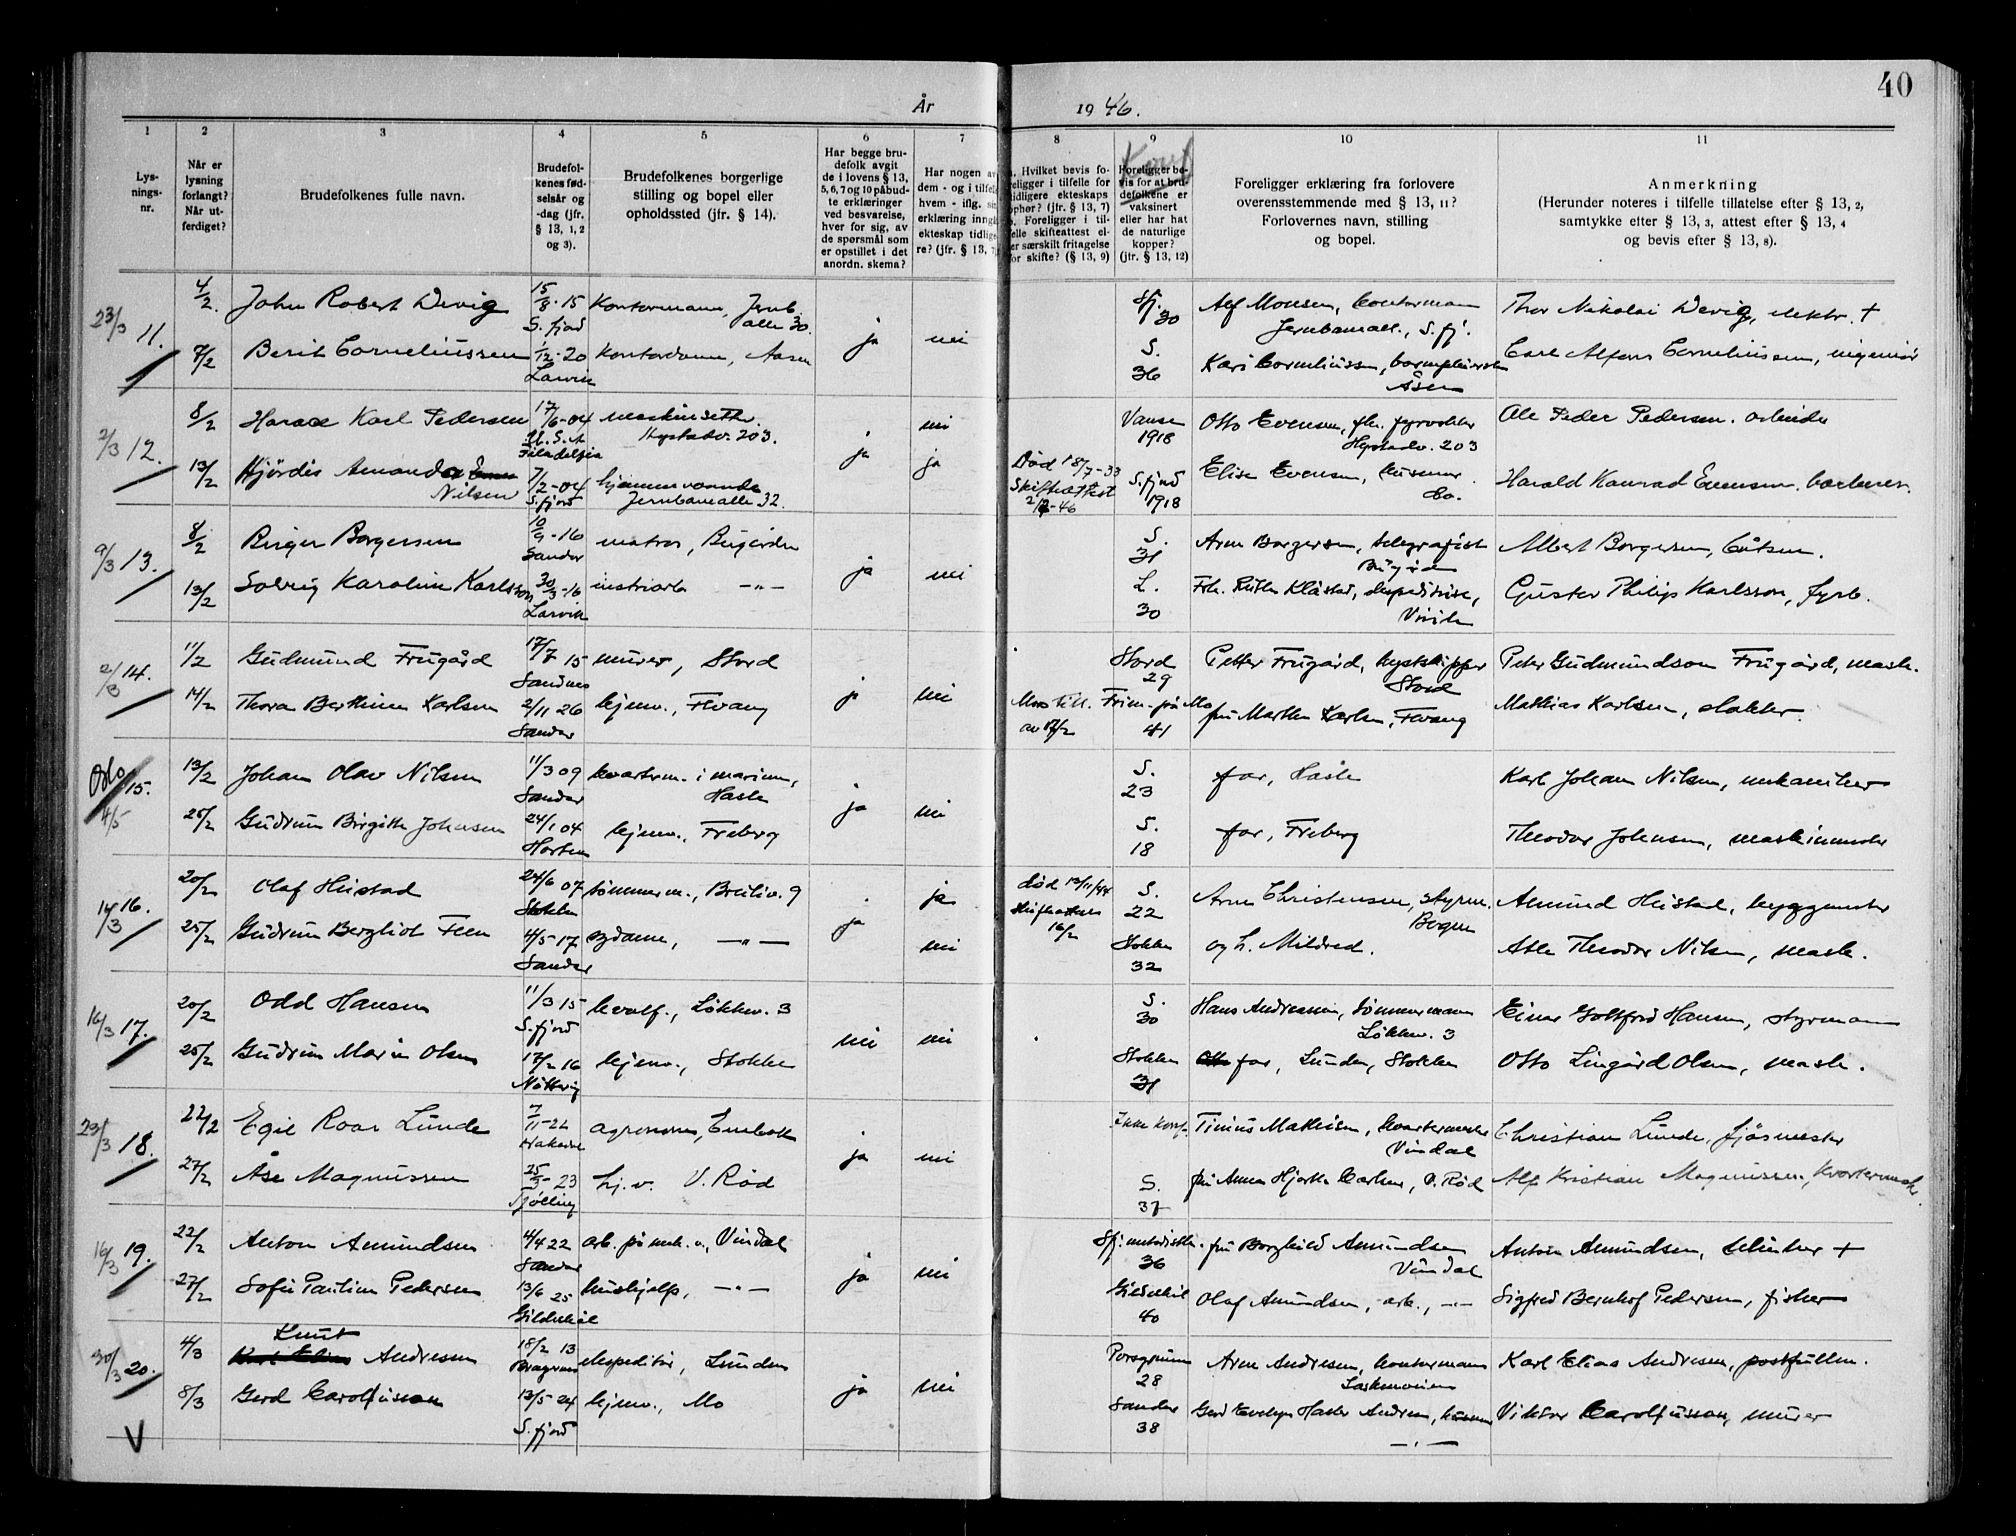 40
År 1946.
1 2 3 4 5 6 7 8 9 10 11
Lys-
nings-
nr.
Når er
lysning
forlangt?
Når ut-
ferdiget?
Brudefolkenes fulle navn.
Brudefol-
kenes fød-
selsår og
-dag (jfr.
§ 13, 1, 2
og 3).
Brudefolkenes borgerlige
stilling og bopel eller
opholdssted (jfr. § 14).
Har begge bru-
defolk avgit
de i lovens § 13,
5, 6, 7 og 10 påbud-
te erklæringer
ved besvarelse,
hver for sig, av
de spørsmål som
er opstillet i det
anordn. skema?
Har nogen av
dem - og i tilfelle
hvem - iflg. sin
erklæring inngå
ekteskap tidlige
re? (jfr. § 13, 7
. Hvilket bevis fo-
religger i tilfelle for
tidligere ekteskaps
ophør? (jfr. § 13, 7)
. Foreligger i til-
felle skifteattest el-
er særskilt fritagelse
for skifte? (§ 13, 9)
Konf
Foreligger be-
vis for at bru-
defolkene er
vaksinert
eller har hat
de naturlige
kopper?
(jfr. § 13, 12)
Foreligger erklæring fra forlovere
overensstemmende med § 13, 11?
Forlovernes navn, stilling
og bopel.
Anmerkning
(Herunder noteres i tilfelle tillatelse efter § 13, 2,
samtykke efter § 13, 3, attest efter § 13, 4
og bevis efter § 13, 8).
23/3 11. 4/2. John Robert Wevig 15/8-15 S.fjord Kontormann, Jernb. alle 30. ja nei Sfj. 30 Alf Monsen, kontormann Jernbaneall., S.fj. Thor Nikolai Wevig, elektr. +
7/2 Berit Corneliussen 1/12-20 Larvik Kontordame, Aasen S. 36 Kari Corneliussen, Åsen Carl Alfons Corneliussen, ingeniør
2/3 12. 8/2 Harace Karl Pedersen 17/6-04 U.S.A Filadelfia maskinsettr. 203. ja nei Vanse 1918 Otto Evensen, 203 Ole Peder Pedersen. arbeider
13/2 Hjördis Amanda Nilsen 7/2-04 S.fjord hjemmeværende Jernbanealle 32. ja Død 18/7-33 Skifteattest S.fjord 1918 Elise Evensen, do. Harald Konrad Evensen. barberer.
9/3 13. 8/2 Birger Borgersen 10/9-16 Sandar matros, Bugården ja nei S. 31 Arne Borgersen, telegrafist Bugården Albert Borgersen, båtsm.
13/2 Solveig Karoline Karlsson 30/3-16 Larvik industriarb —"— L. 30 Frk. Ruth Klåstad, ekspeditrise, Virik Gustav Philip Karlsson, fyrb.
2/3 14. 11/2 Gudmund Frugård 17/7 15 Sandnes murer, Stord ja nei Stord 29 Petter Frugård, kystskipper Stord Peter Gudmundson Frugård, mask.
14/2 Thora Berthine Karlsen 2/11 26 Sandar hjemv., Fevang Mors till. av 12/2 Frim. på Mo 41 fru Marthe Karlsen, Fevang Mathias Karlsen, slakter.
Oslo 4/5 15. 13/2 Johan Olav Nilsen 11/3 09 Sandar kvarterm. i marinen, Hasle ja nei S. 23 far, Hasle Karl Johan Nilsen, mekaniker
25/2 Gudrun Birgitte Johnsen 24/1 04 Horten hjemv., Freberg S. 18 far, Freberg Theodor Johnsen, maskinmester
16/3 16. 20/2 Olaf Heistad 24/6 07 Stokke tømmerm., Breiliv. 9 ja ja død 13/11/44 skifteattest 16/2 S. 22 Arne Christensen, styrm. Bogen Amund Heistad, byggmester
25/2 Gudrun Bergliot Feen 4/5-17 Sandar sydame, —"— nei Stokke 32 og h. Mildred. Atle Theodor Nilsen, mask.
16/3 17. 20/2 Odd Hansen 11/3 15 S.fjord hvalf., Løkkev. 3 nei nei S. 30 Hans Andreassen, tømmermann Løkkev. 3 Einar Gottfred Hansen, styrmann
25/2 Gudrun Marie Olsen 17/2 16 Nøtterøy hjemv., Stokke Stokke 31 far, Lunden, Stokke Otto Lingård Olsen, mask.
23/3 18. 22/2 Egil Roar Lunde 7/11-22 agronom, ja nei Ikke konf. Tinius Mathisen, kvartermester Vindal Christian Lunde, fjøsmester
27/2 Åse Magnussen 25/3-23 Tjølling hj.v. V. Rød S. 37 fru Anna Hjorth Carlsen, V. Rød Alf Kristian Magnussen, Kvartermest
16/3 19. 22/2 Anton Amundsen 4/4 22 Sandar arb. på mek. v., Vindal ja nei Sfj. metodistk. 36 fru Borghild Amundsen Vindal Anton Amundsen, klinker +
27/2 Sofie Pauline Pedersen 13/6 25 Gildeskål hushjelp, —"— Gildeskål 40 Olaf Amundsen, arb., —"— Sigfred Bernhof Pedersen, fisker
30/3 20. 4/3 Knut Andresen 18/2 13 Bragernes ekspeditør, Lunden ja nei Porsgrunn 28 Arne Andresen, kontormann Karl Elias Andresen, postfullm.
8/3 Gerd Carolfusson 13/5 24 S.fjord hjemv., Mo Sandar 38 Gerd Evelyn Andresen, —"— Viktor Carolfusson, murer
V